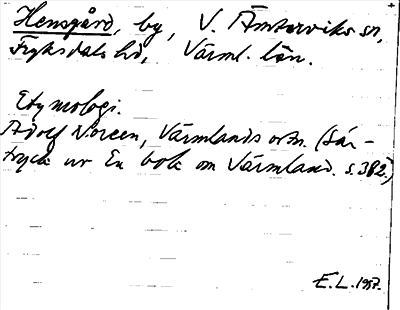 Hensgård, by, V. Ämterviks sn,
Fryksdals hd, Värml. län.
Etymologi.
Adolf Noreen, Värmlands ortn. (Sär-
tryck ur En bok om Värmland. s. 382.)
E.L. 1957.